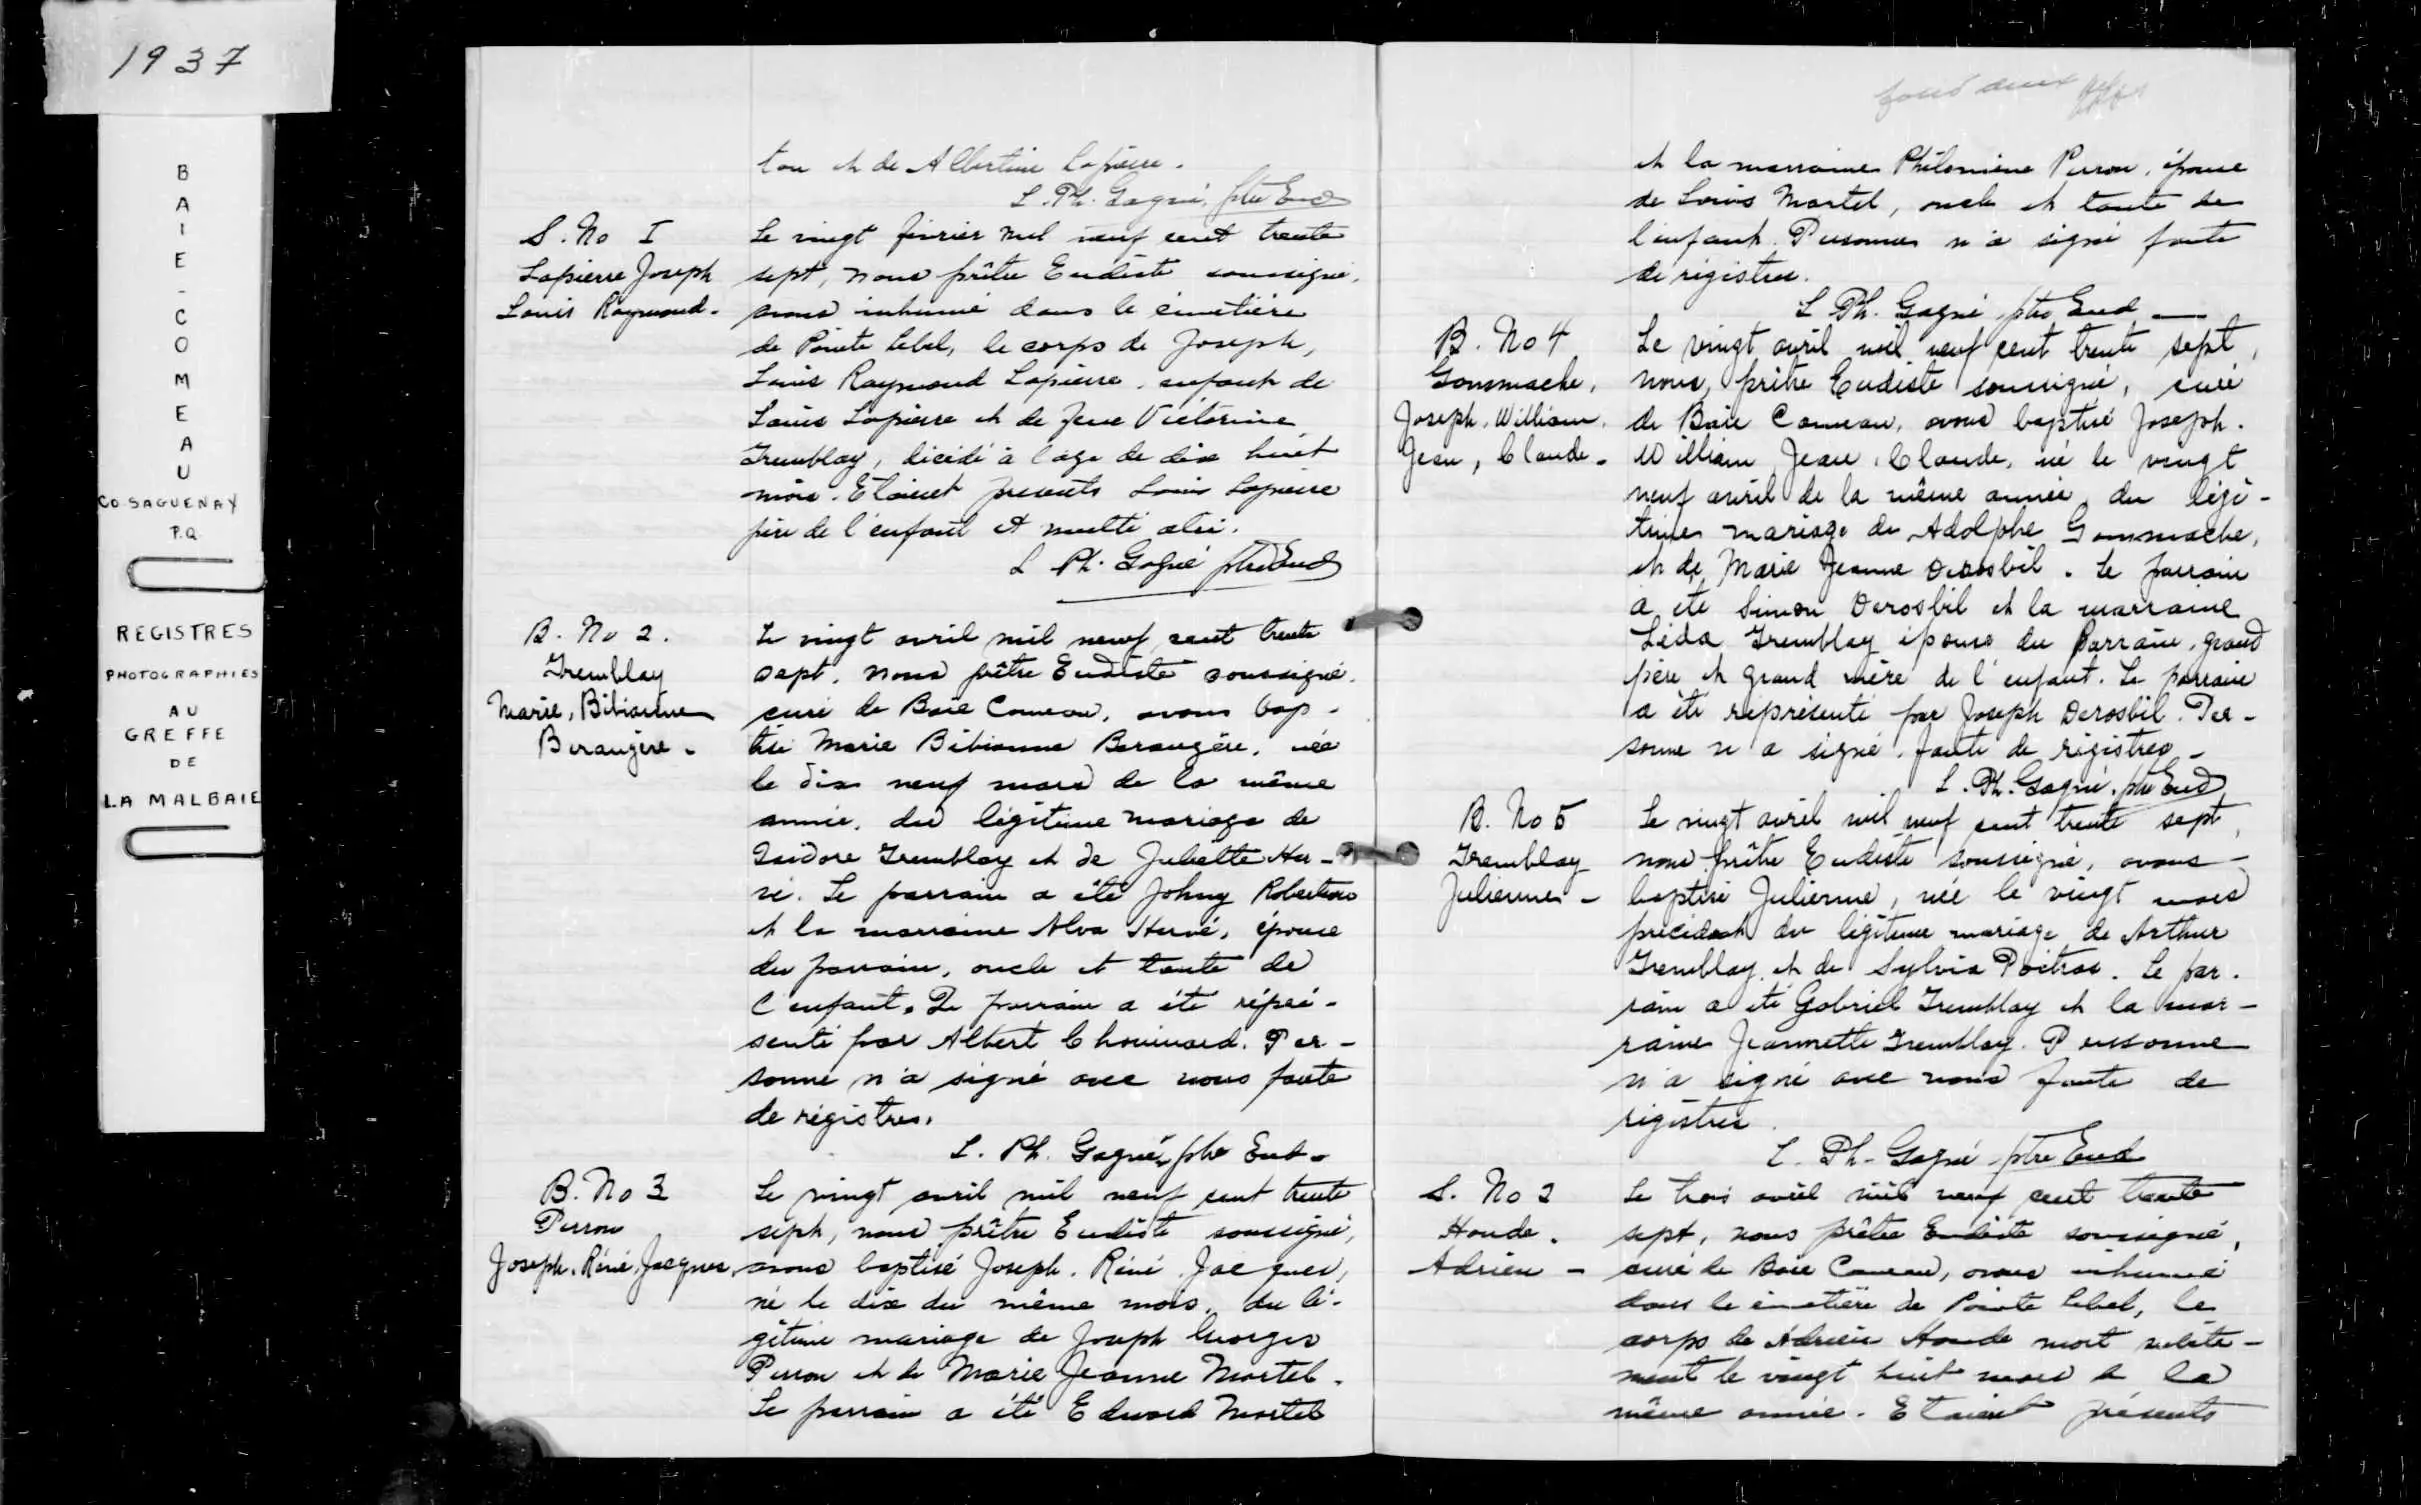 1937
BAIE-COMEAU
CO. SAGUENAY
P.Q.
REGISTRES
PHOTOGRAPHIES
AU
GREFFE
DE
LA MALBAIE
ton et de Albertine Lapierre.
L. Ph. Gagné, ptre Eud
S. No I
Lapierre Joseph
Louis Raymond.
Le vingt février mil neuf cent trente
sept, nous prêtre Eudiste soussigné,
avons inhumé dans le cimetière
de Pointe Lebel, le corps de Joseph,
Louis Raymond Lapierre, enfant de
Louis Lapierre et de feue Victorine
Tremblay, décédé à l'age de dix huit
mois. Etaient presents Louis Lapierre
père de l'enfant et multi alii.
L Ph. Gagné ptre Eud
B. No 2.
Tremblay
Marie, Bibianne
Berangère.
Le vingt avril mil neuf cent trente
sept, nous prêtre Eudiste soussigné,
curé de Baie Comeau, avons bap-
tisé Marie Bibianne Berangère, née
le dix neuf mars de la même
année, du légitime mariage de
Isidore Tremblay et de Juliette Her-
vé. Le parrain a été Johny Robertson
et la marraine Alva Hervé, épouse
du parrain, oncle et tante de
l'enfant. Le parrain a été répré-
senté par Albert Chouinard. Per-
sonne n'a signé avec nous faute
de régistres.
L. Ph. Gagné, ptre Eud.
B. No 3
Perron
Joseph, Réné, Jacques,
Le vingt avril mil neuf cent trente
sept, nous prêtre Eudiste soussigné,
avons baptisé Joseph. Réné. Jacques,
né le dix du même mois, du lé-
gitime mariage de Joseph Georges
Perron et de Marie Jeanne Martel.
Le parrain a été Edward Martel
et la marraine Philomène Perron, épouse
de Louis Martel, oncle et tante de
l'enfant. Personne n'a signé faute
de régistres.
L Ph. Gagné ptre Eud
B. No 4
Gommache,
Joseph, William,
Jean, Claude.
Le vingt avril mil neuf cent trente sept,
nous, prêtre Eudiste soussigné, curé
de Baie Comeau, avons baptisé Joseph.
William, Jean, Claude, né le vingt
neuf avril de la même année, du légi-
time mariage de Adolphe Gommache,
et de Marie Jeanne Derosbil. Le parrain
a été Simon Derosbil et la marraine
Léda Tremblay épouse du parrain, grand
père et grand mère de l'enfant. Le parrain
a été réprésenté par Joseph Derosbil. Per-
sonne n'a signé, faute de régistres.
L. Ph. Gagné, ptre Eud
B. No 5
Tremblay
Julienne -
Le vingt avril mil neuf cent trente sept,
nous prêtre Eudiste soussigné, avons
baptisé Julienne, née le vingt mars
précédent du légitime mariage de Arthur
Tremblay et de Sylvia Poitras. Le par-
rain a été Gabriel Tremblay et la mar-
raine Jeannette Tremblay. Personne
n'a signé avec nous faute de
régistres.
L. Ph. Gagné ptre Eud
S. No 2
Houde.
Adrien -
Le trois avril mil neuf cent trente
sept, nous prêtre Eudiste soussigné,
curé de Baie Comeau, avons inhumé
dans le cimetière de Pointe Lebel, le
corps de Adrien Houde mort subite-
ment le vingt huit mars de la
même année. Etaient présents